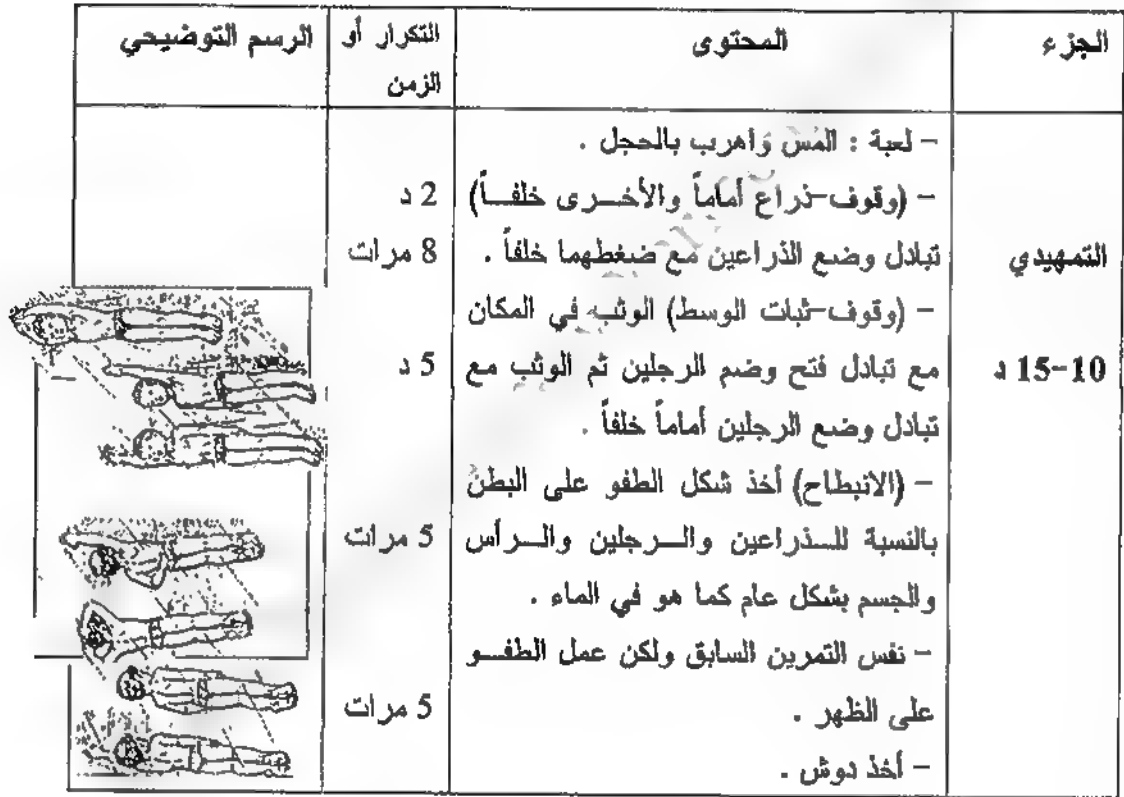 الجزء المحتوى التكرار أو الرسم التوضيحي
الزمن
- لعبة : المس واهرب بالحجل .
- (وقوف-ذراع أماماً والأخرى خلفاً) 2 د
التمهيدي تبادل وضع الذراعين مع ضغطهما خلفاً . 8 مرات
- (وقوف-ثبات الوسط) الوثب في المكان
10-15 د مع تبادل فتح وضم الرجلين ثم الوثب مع 5 د
تبادل وضع الرجلين أماماً خلفاً .
- (الانبطاح) أخذ شكل الطفو على البطن
بالنسبة للذراعين والرجلين والرأس 5 مرات
والجسم بشكل عام كما هو في الماء .
- نفس التمرين السابق ولكن عمل الطفو
على الظهر . 5 مرات
- أخذ دوش .